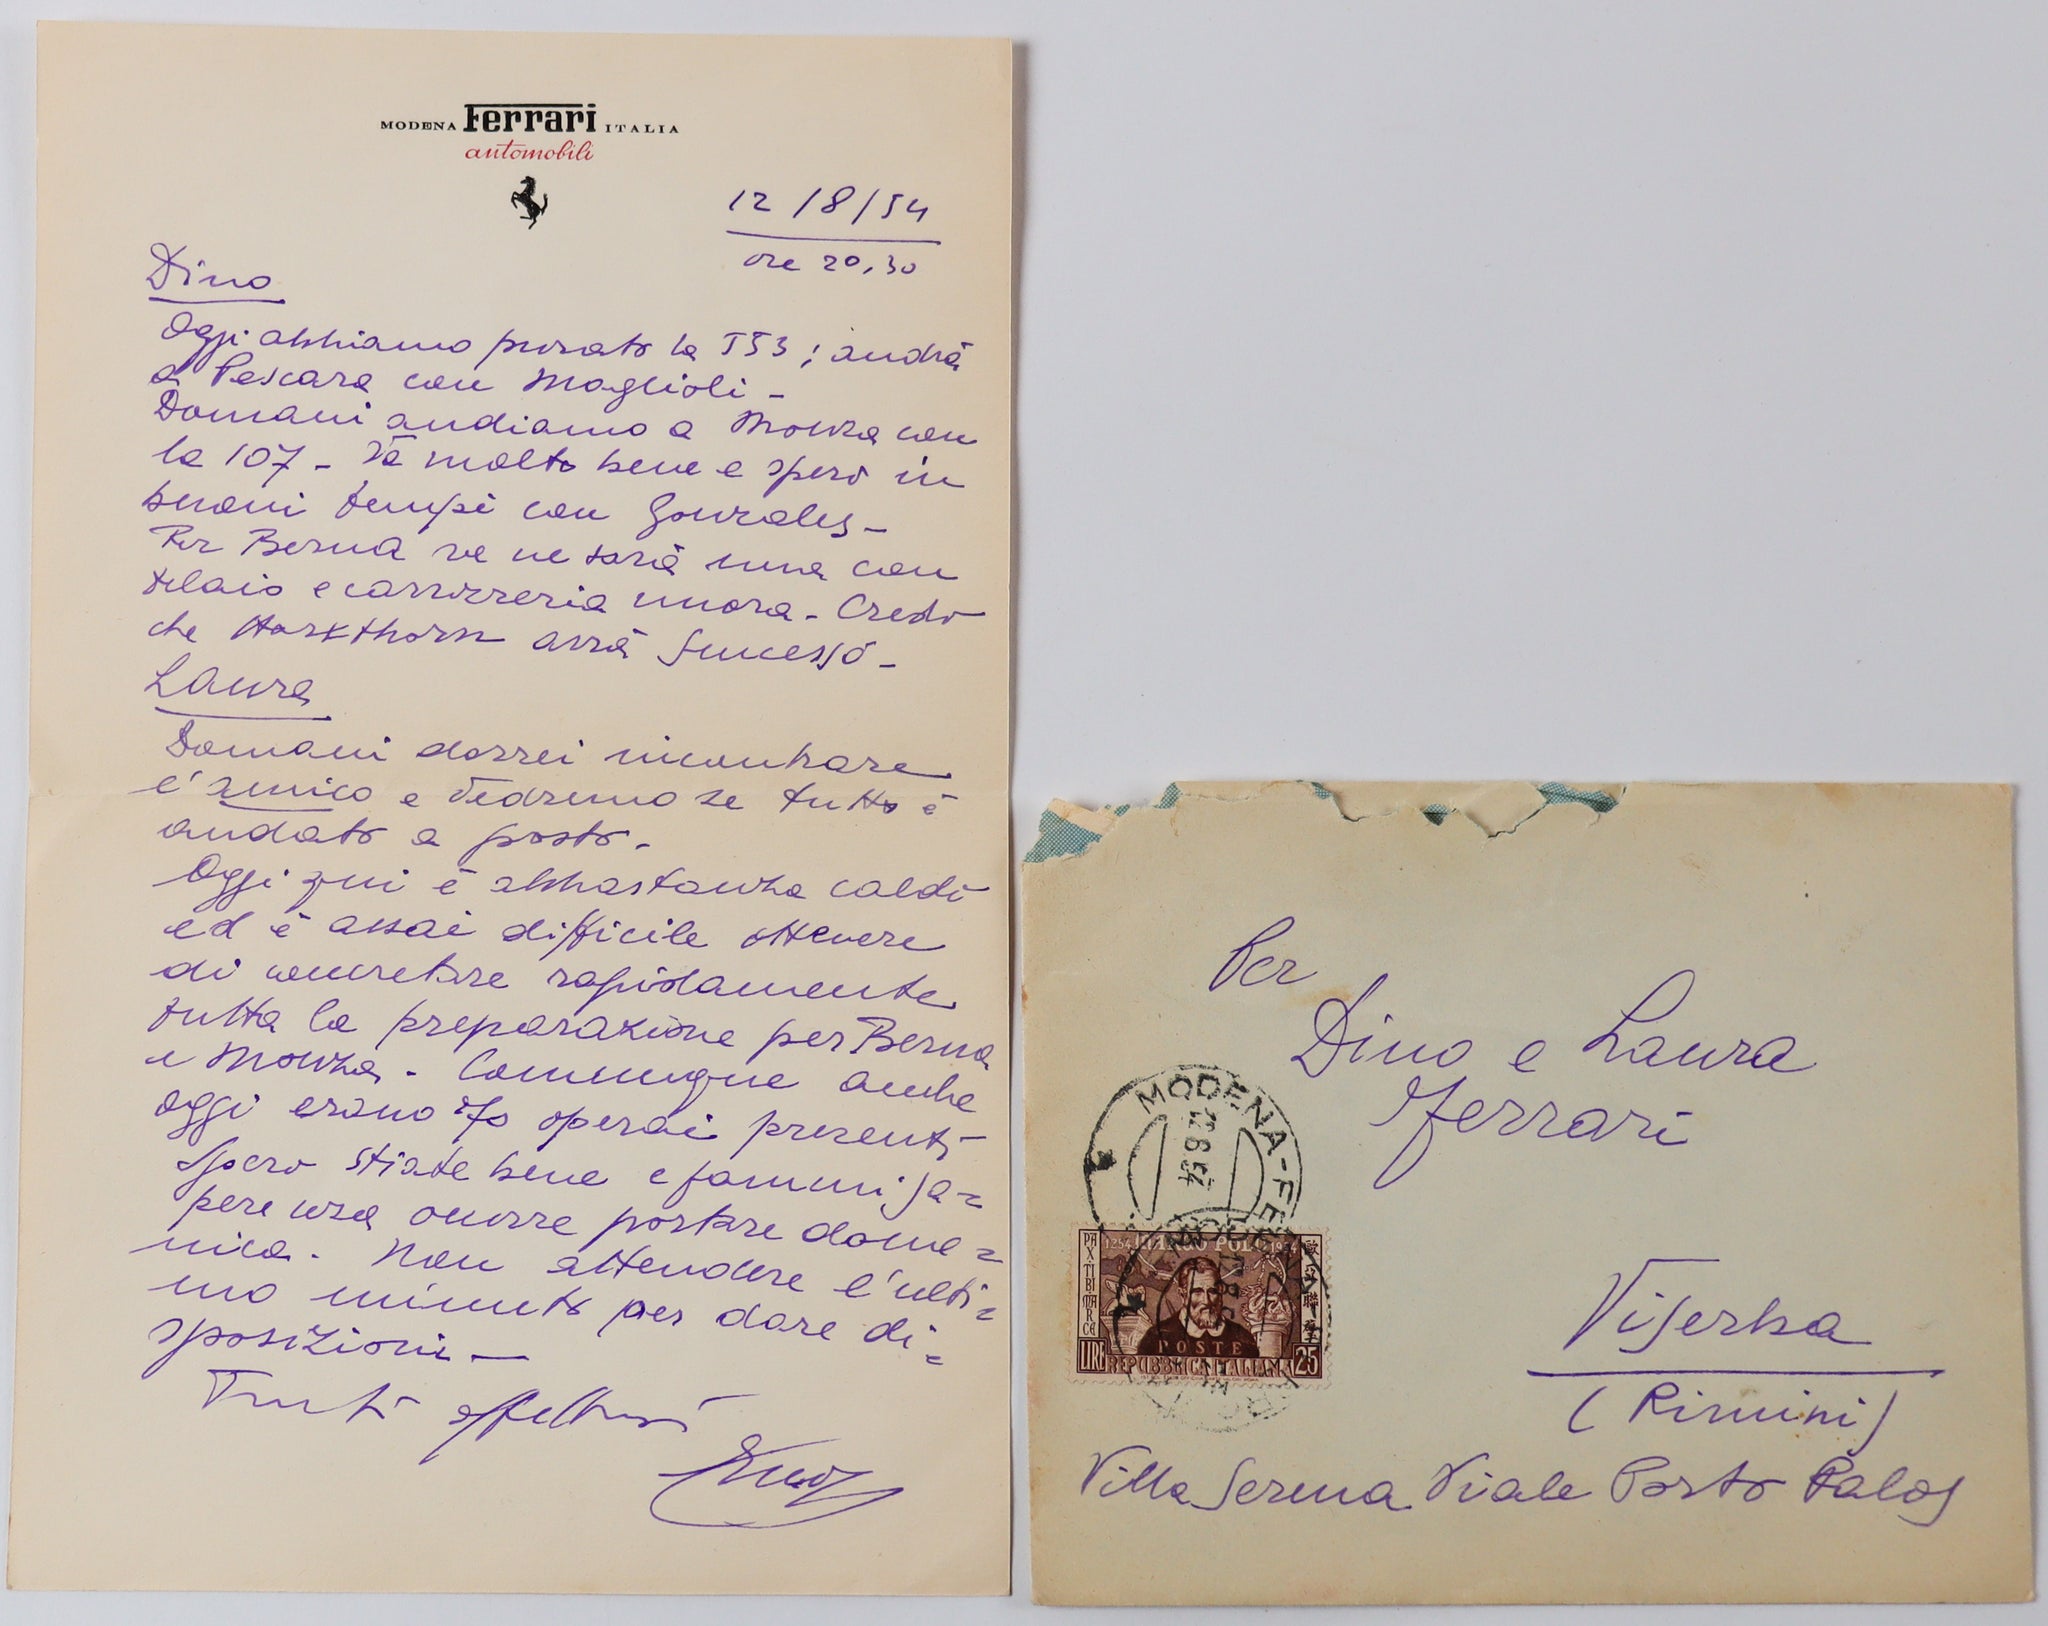 MODENA Ferrari ITALIA
automobili
12/8/54
ore 20,30
Dino
Oggi abbiamo provato la 553; andrà
a Pescara con Maglioli -
Domani andiamo a Monza con
la 107 - Và molto bene e spero in
buoni tempi con Gonzales -
Per Berna ve ne sarà una con
telaio e carrozzeria nuova - Credo
che Horkthorn avrà successo -
Laura
Domani dovrei incontrare
l'amico e vedremo se tutto è
andato a posto -
Oggi qui è abbastanza caldo
ed è assai difficile ottenere
di concretare rapidamente
tutta la preparazione per Berna
e Monza - Comunque anche
oggi erano 70 operai presenti -
Spero stiate bene e fammi sa=
pere cosa occorre portare dome=
nica. Non attendere l'ulti=
mo minuto per dare di=
sposizioni -
Tanti affettuosi
Enzo
Per
Dino e Laura
Ferrari
MODENA-FE
12.8.54
MODENA
PAX TIBI MARCE
1254 MARCO POLO 1954
POSTE
LIRE REPUBBLICA ITALIANA 25
Viserba
(Rimini)
Villa Serena Viale Porto Palos